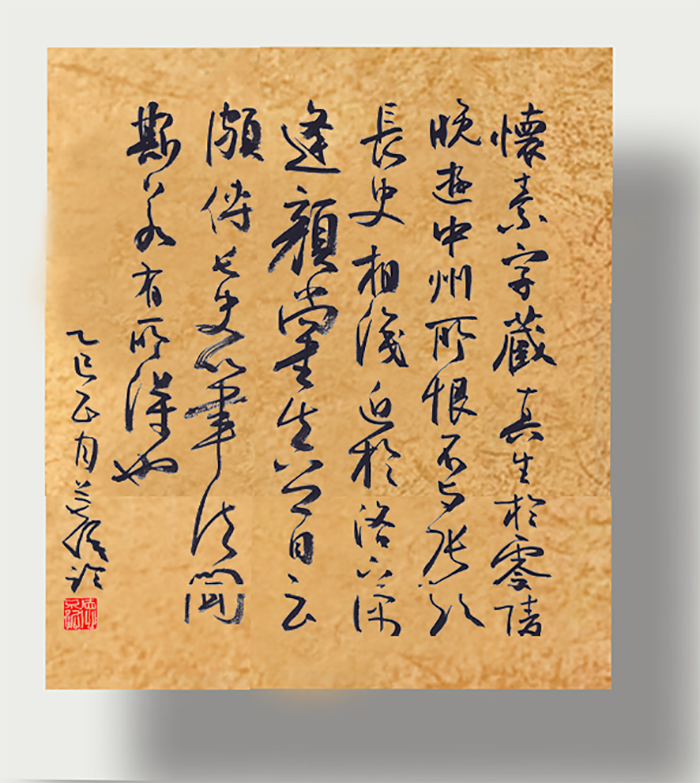 懷素字藏真生於零陵
晚遊中州所恨不與張顛
長史相識近於洛下偶
逢顏尚書自云
頗傳長史筆法聞
斯八若有所得也
乙巳正月